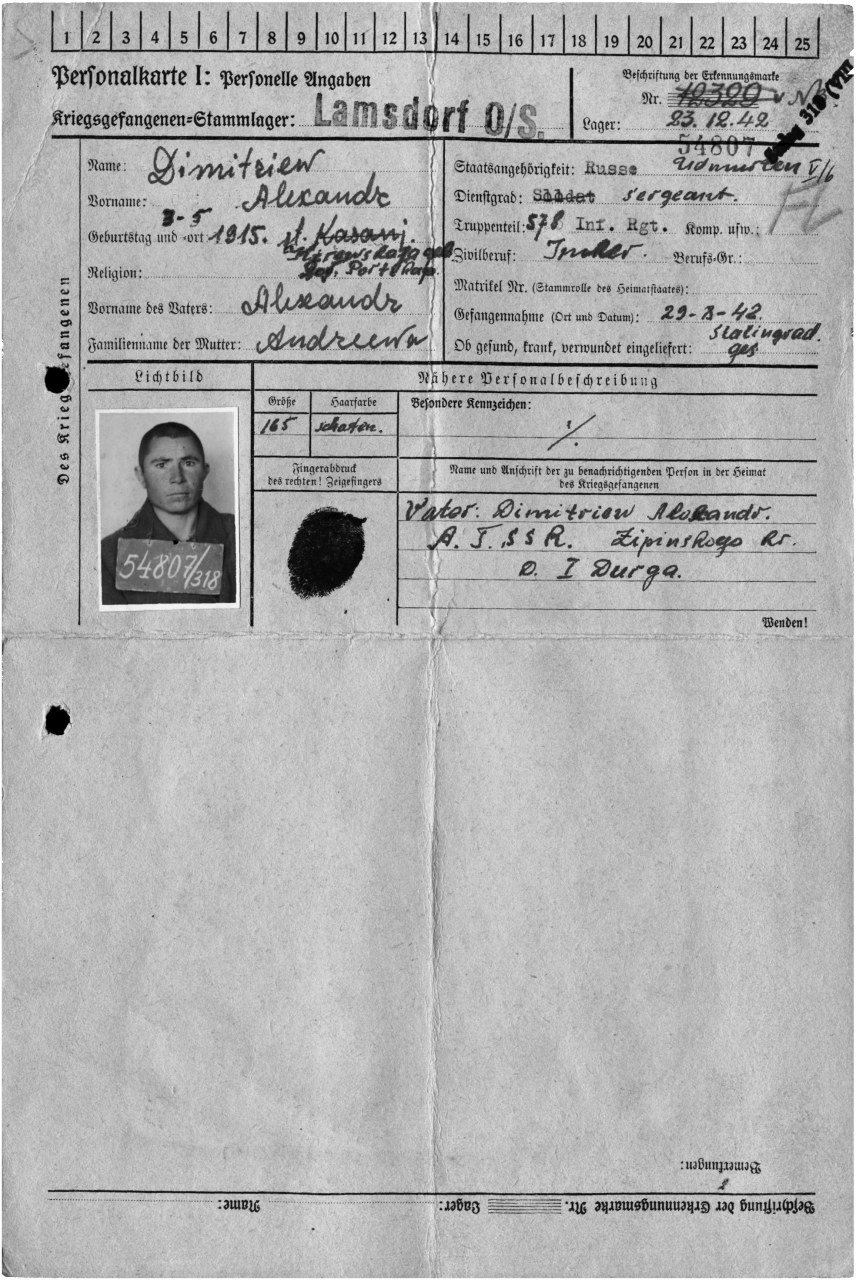 1 2 3 4 5 6 7 8 9 10 11 12 13 14 15 16 17 18 19 20 21 22 23 24 25
Personalkarte I: Personelle Angaben
Kriegsgefangenen=Stammlager: Lamsdorf O/S.
Beschriftung der Erkennungsmarke
Nr. 12329
54807
318 (VIII
Lager: 23.12.42
Des Kriegsgefangenen
Name: Dimitriew
Vorname: Alexandr
Geburtstag und -ort 3-5 1915. st. Kasanj.
Religion:
Vorname des Vaters: Alexandr
Familienname der Mutter: Andreewa
Staatsangehörigkeit: Russe Udmurten V/6
Dienstgrad: Soldat Sergeant.
Truppenteil: 578 Inf. Rgt. Komp. usw.:
Zivilberuf: Berufs-Gr.:
Matrikel Nr. (Stammrolle des Heimatstaates):
Gefangennahme (Ort und Datum): 29-8-42. Stalingrad.
Ob gesund, krank, verwundet eingeliefert: ges
Lichtbild
54807/318
Nähere Personalbeschreibung
Größe
165
Haarfarbe
schaten.
Besondere Kennzeichen:
./.
Fingerabdruck
des rechten! Zeigefingers
Name und Anschrift der zu benachrichtigenden Person in der Heimat
des Kriegsgefangenen
Vater: Dimitriew Alexandr.
A. T. S S R. Zipinskogo Rr.
D. I Durga.
Wenden!
Bemerkungen:
Beschriftung der Erkennungsmarke Nr. Lager: Name: